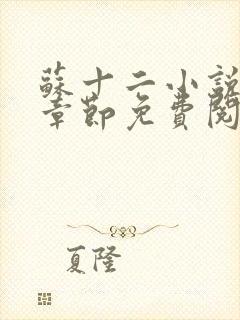 蘇十二小說
章節免費閱
夏隆